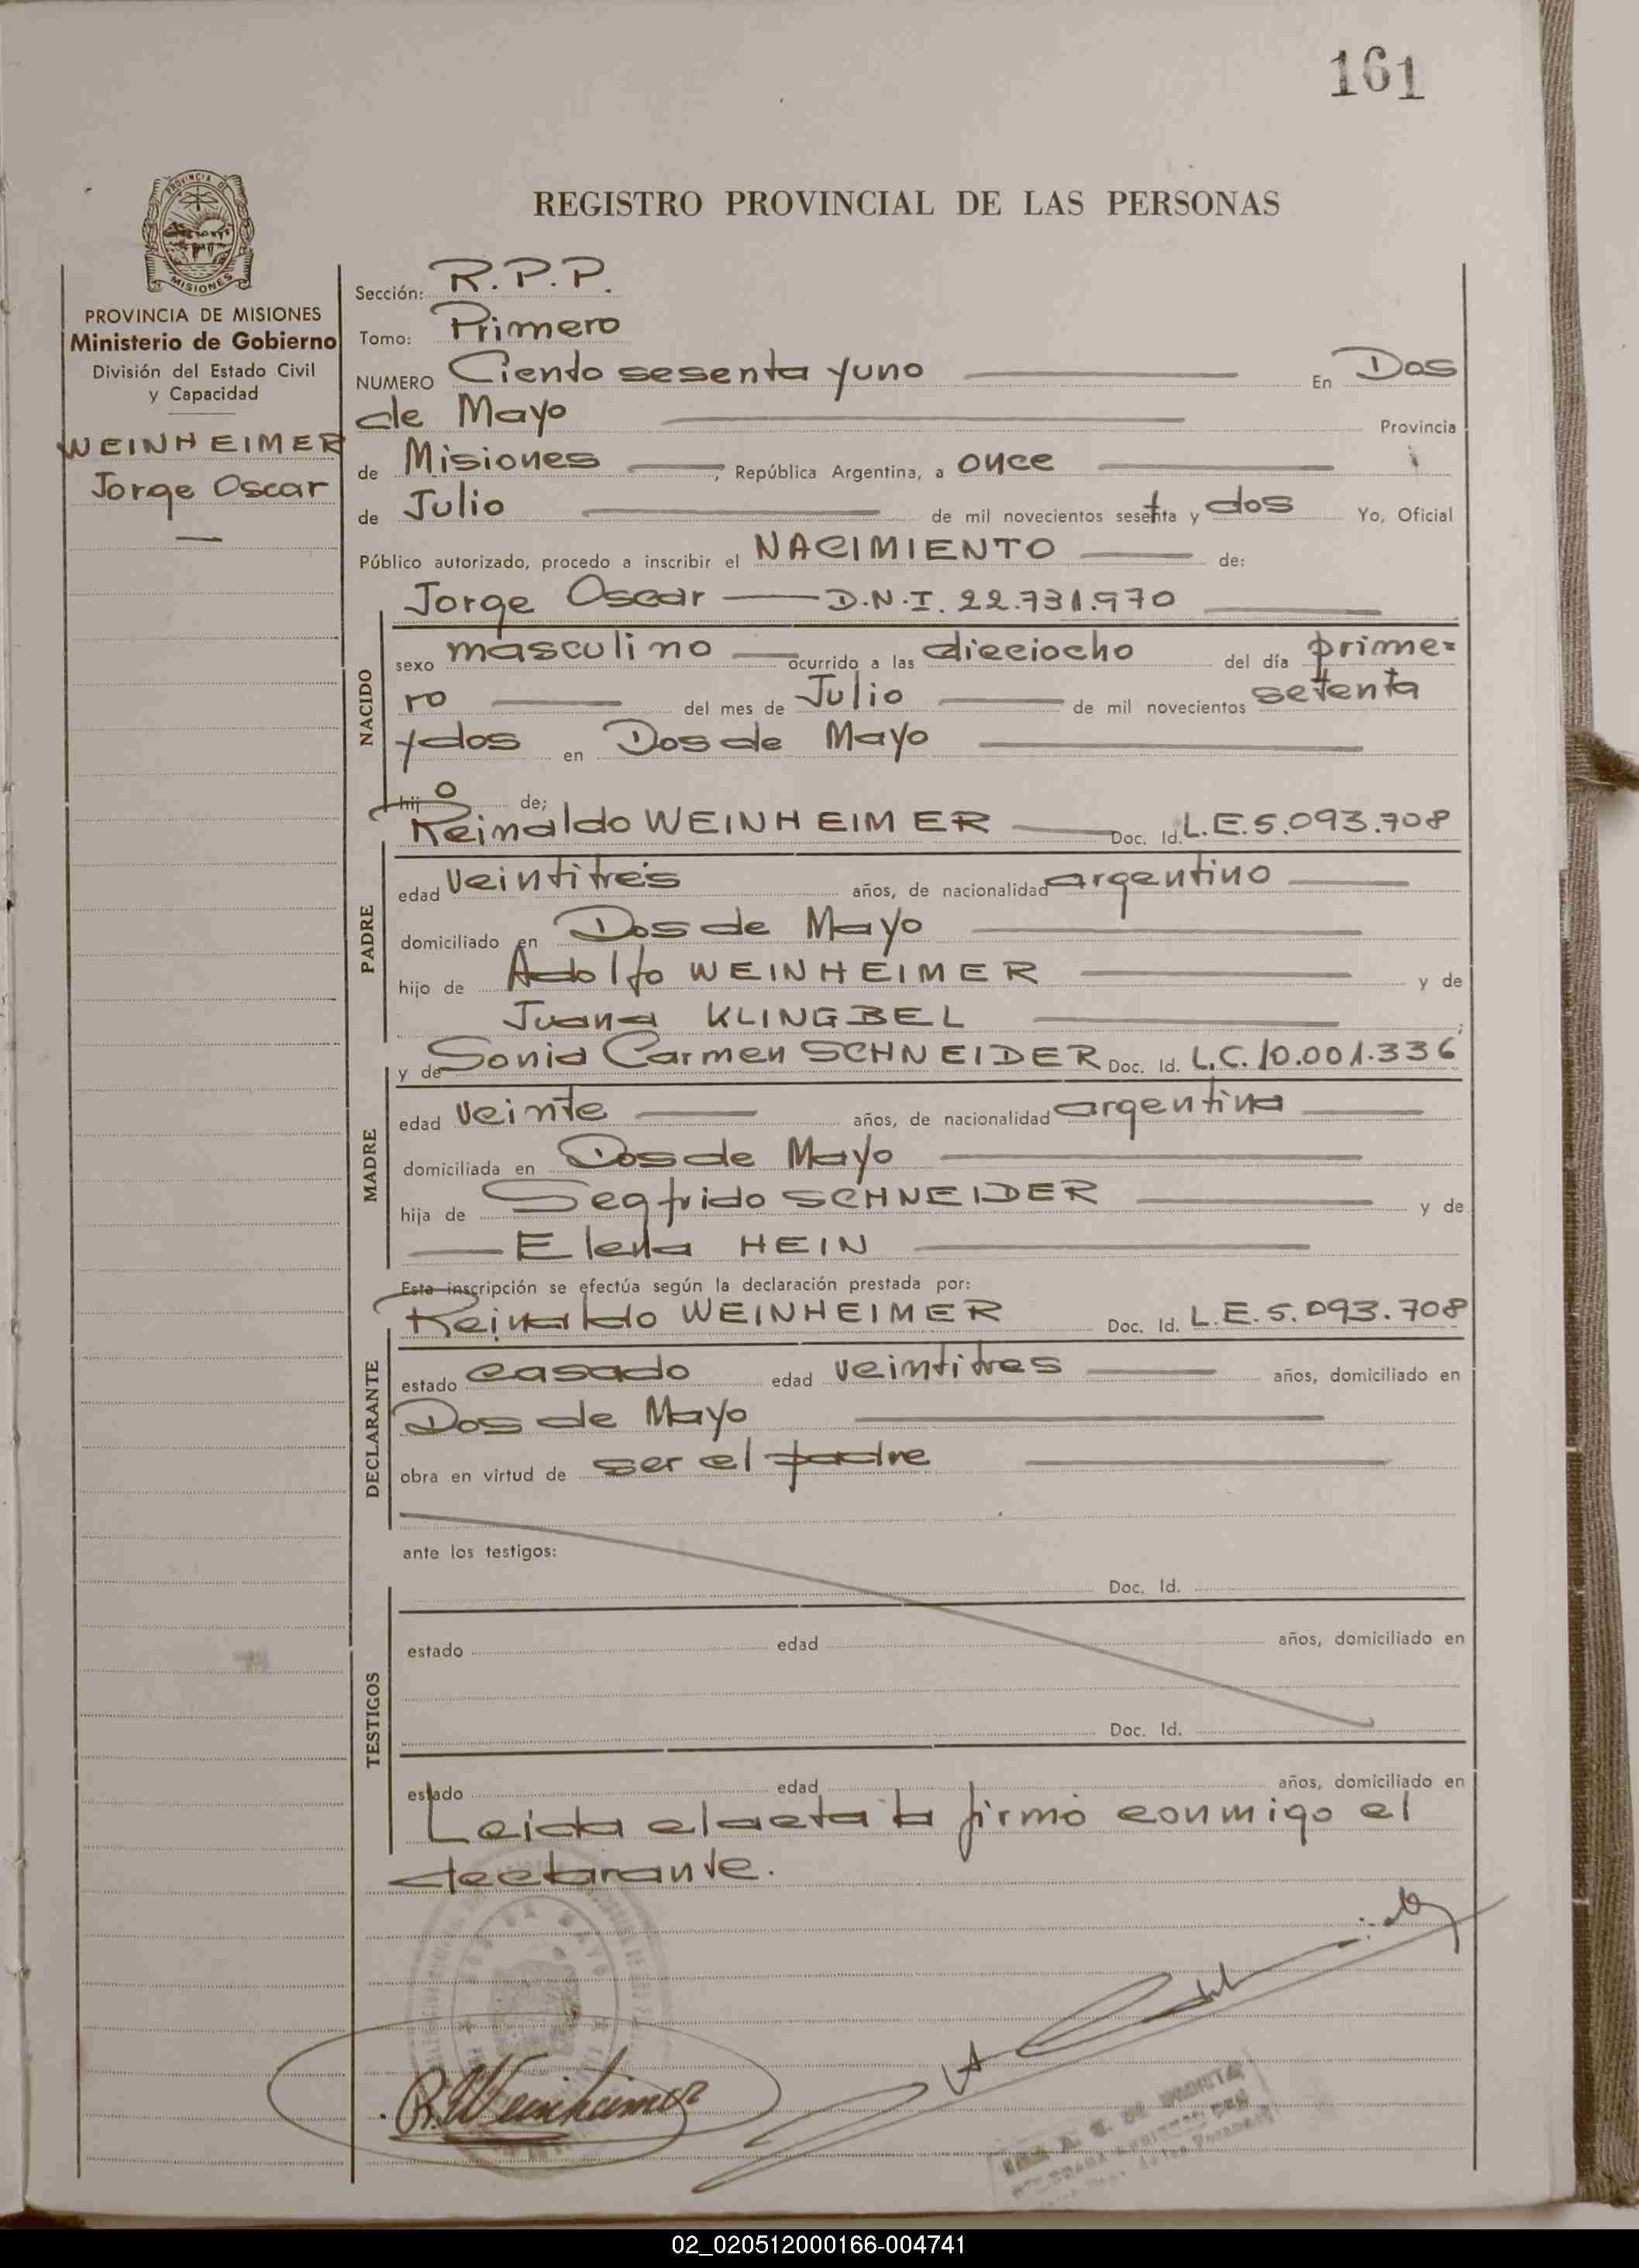 161
PROVINCIA DE MISIONES
REGISTRO PROVINCIAL DE LAS PERSONAS
PROVINCIA DE MISIONES
Ministerio de Gobierno
División del Estado Civil
y Capacidad
WEINHEIMER
Jorge Oscar
Sección: R.P.P.
Tomo: Primero
NUMERO Ciento sesenta y uno En Dos
de Mayo Provincia
de Misiones, República Argentina, a once
de Julio de mil novecientos setenta y dos Yo, Oficial
Público autorizado, procedo a inscribir el NACIMIENTO de:
Jorge Oscar D.N.I. 22.731.970
NACIDO
sexo masculino ocurrido a las dieciocho del día prime=
ro del mes de Julio de mil novecientos setenta
y dos en Dos de Mayo
hijo de;
Reinaldo WEINHEIMER Doc. Id. L.E.5.093.708
PADRE
edad veintitrés años, de nacionalidad argentino
domiciliado en Dos de Mayo
hijo de Adolfo WEINHEIMER y de
Juana KLINGBEL ;
y de Sonia Carmen SCHNEIDER Doc. Id. L.C.10.001.336
MADRE
edad veinte años, de nacionalidad argentina
domiciliada en Dos de Mayo
hija de Segfrido SCHNEIDER y de
Elena HEIN
Esta inscripción se efectúa según la declaración prestada por:
Reinaldo WEINHEIMER Doc. Id. L.E.5.093.708
DECLARANTE
estado casado edad veintitres años, domiciliado en
Dos de Mayo
obra en virtud de ser el padre
ante los testigos:
Doc. Id.
TESTIGOS
estado edad años, domiciliado en
Doc. Id.
estado edad años, domiciliado en
Leida el acta la firmó conmigo el
declarante.
R. Weinheimer
02_020512000166-004741